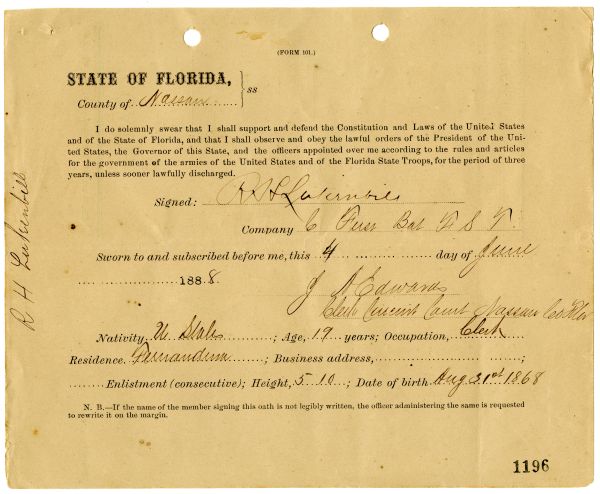 (FORM 101.)
STATE OF FLORIDA,
County of Nassau ss
I do solemnly swear that I shall support and defend the Constitution and Laws of the United States
and of the State of Florida, and that I shall observe and obey the lawful orders of the President of the Uni-
ted States, the Governor of this State, and the officers appointed over me according to the rules and articles
for the government of the armies of the United States and of the Florida State Troops, for the period of three
years, unless sooner lawfully discharged.
Signed: R H Lukenbill
Company C First Bat F S T.
Sworn to and subscribed before me, this 4 day of June
1888.
J A Edwards
Clerk Circuit Court Nassau Co Fla
Nativity, U. States; Age, 19 years; Occupation, Clerk
Residence. Fernandina; Business address, ;
Enlistment (consecutive); Height, 5 10; Date of birth Aug 31st 1868
N. B.—If the name of the member signing this oath is not legibly written, the officer administering the same is requested
to rewrite it on the margin.
1196
R H Lukenbill